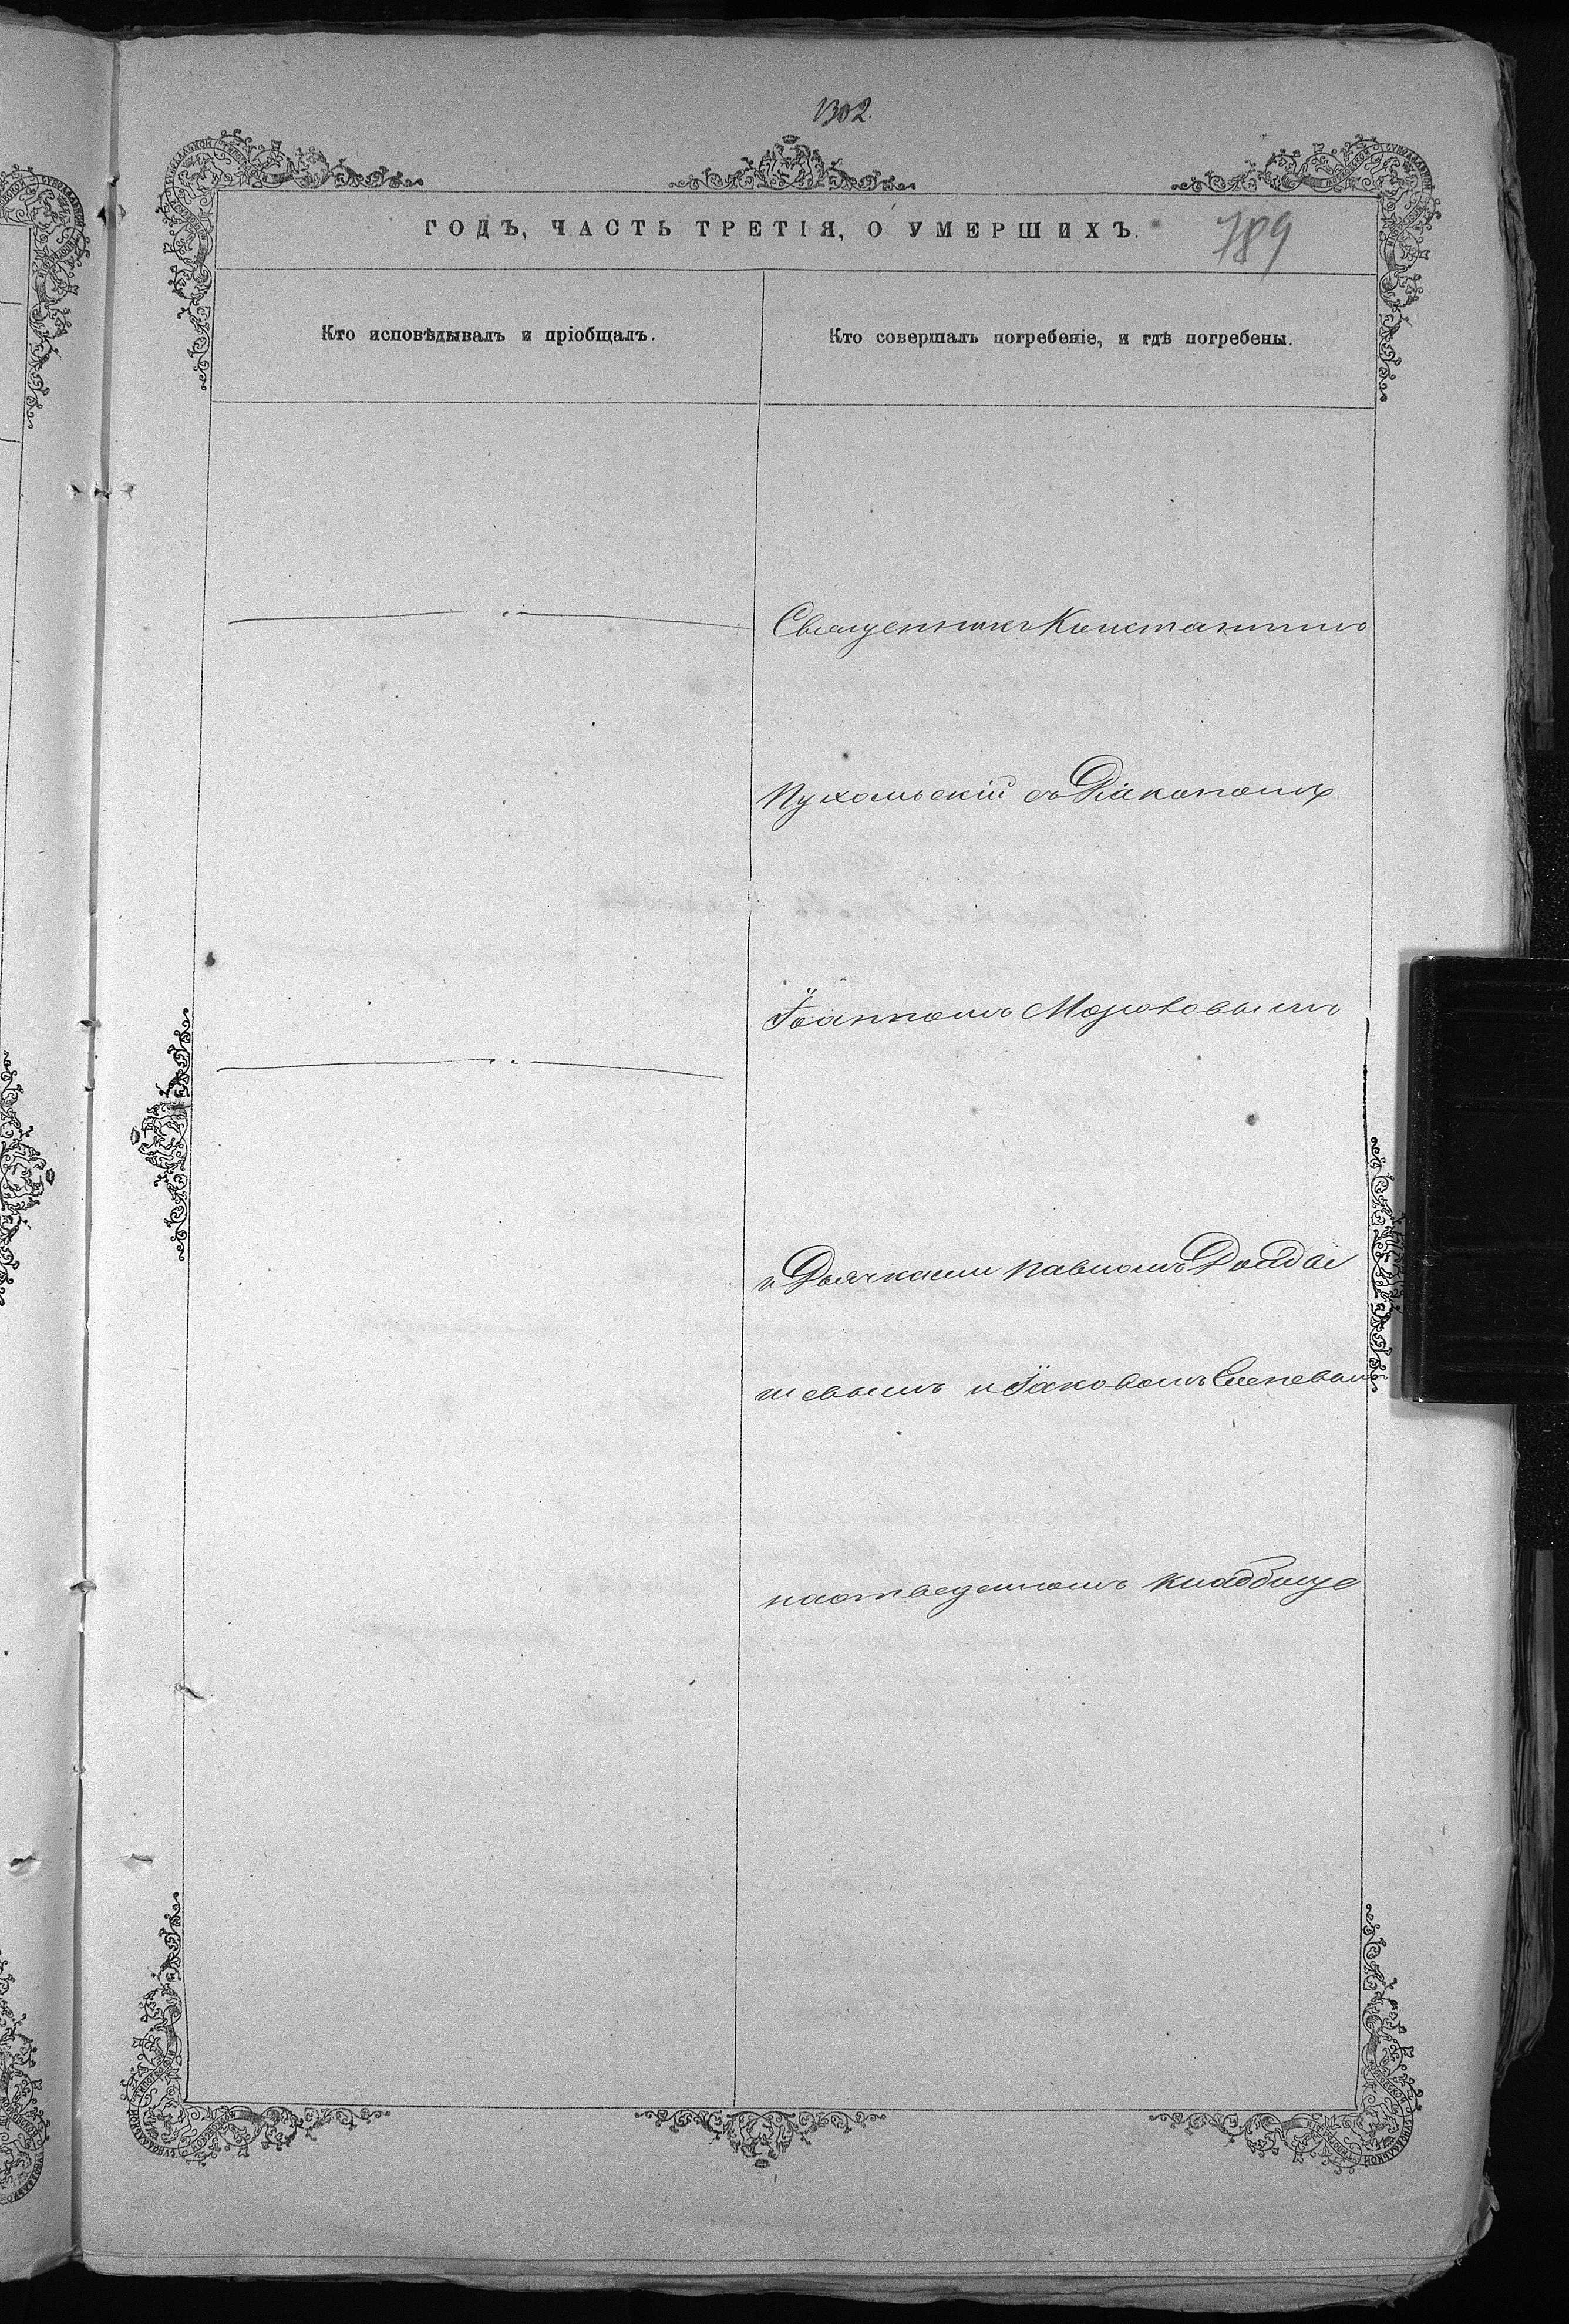 1302.
ГОДЪ, ЧАСТЬ ТРЕТІЯ, О УМЕРШИХЪ.
789
Кто исповѣдывалъ и пріобщалъ.
Кто совершалъ погребеніе, и гдѣ погребены.
Священникъ Константинъ
Пухальскій съ Діакономъ
Іоанномъ
и Дьячками Павломъ
шевымъ и Іаковомъ
на отведенномъ кладбище